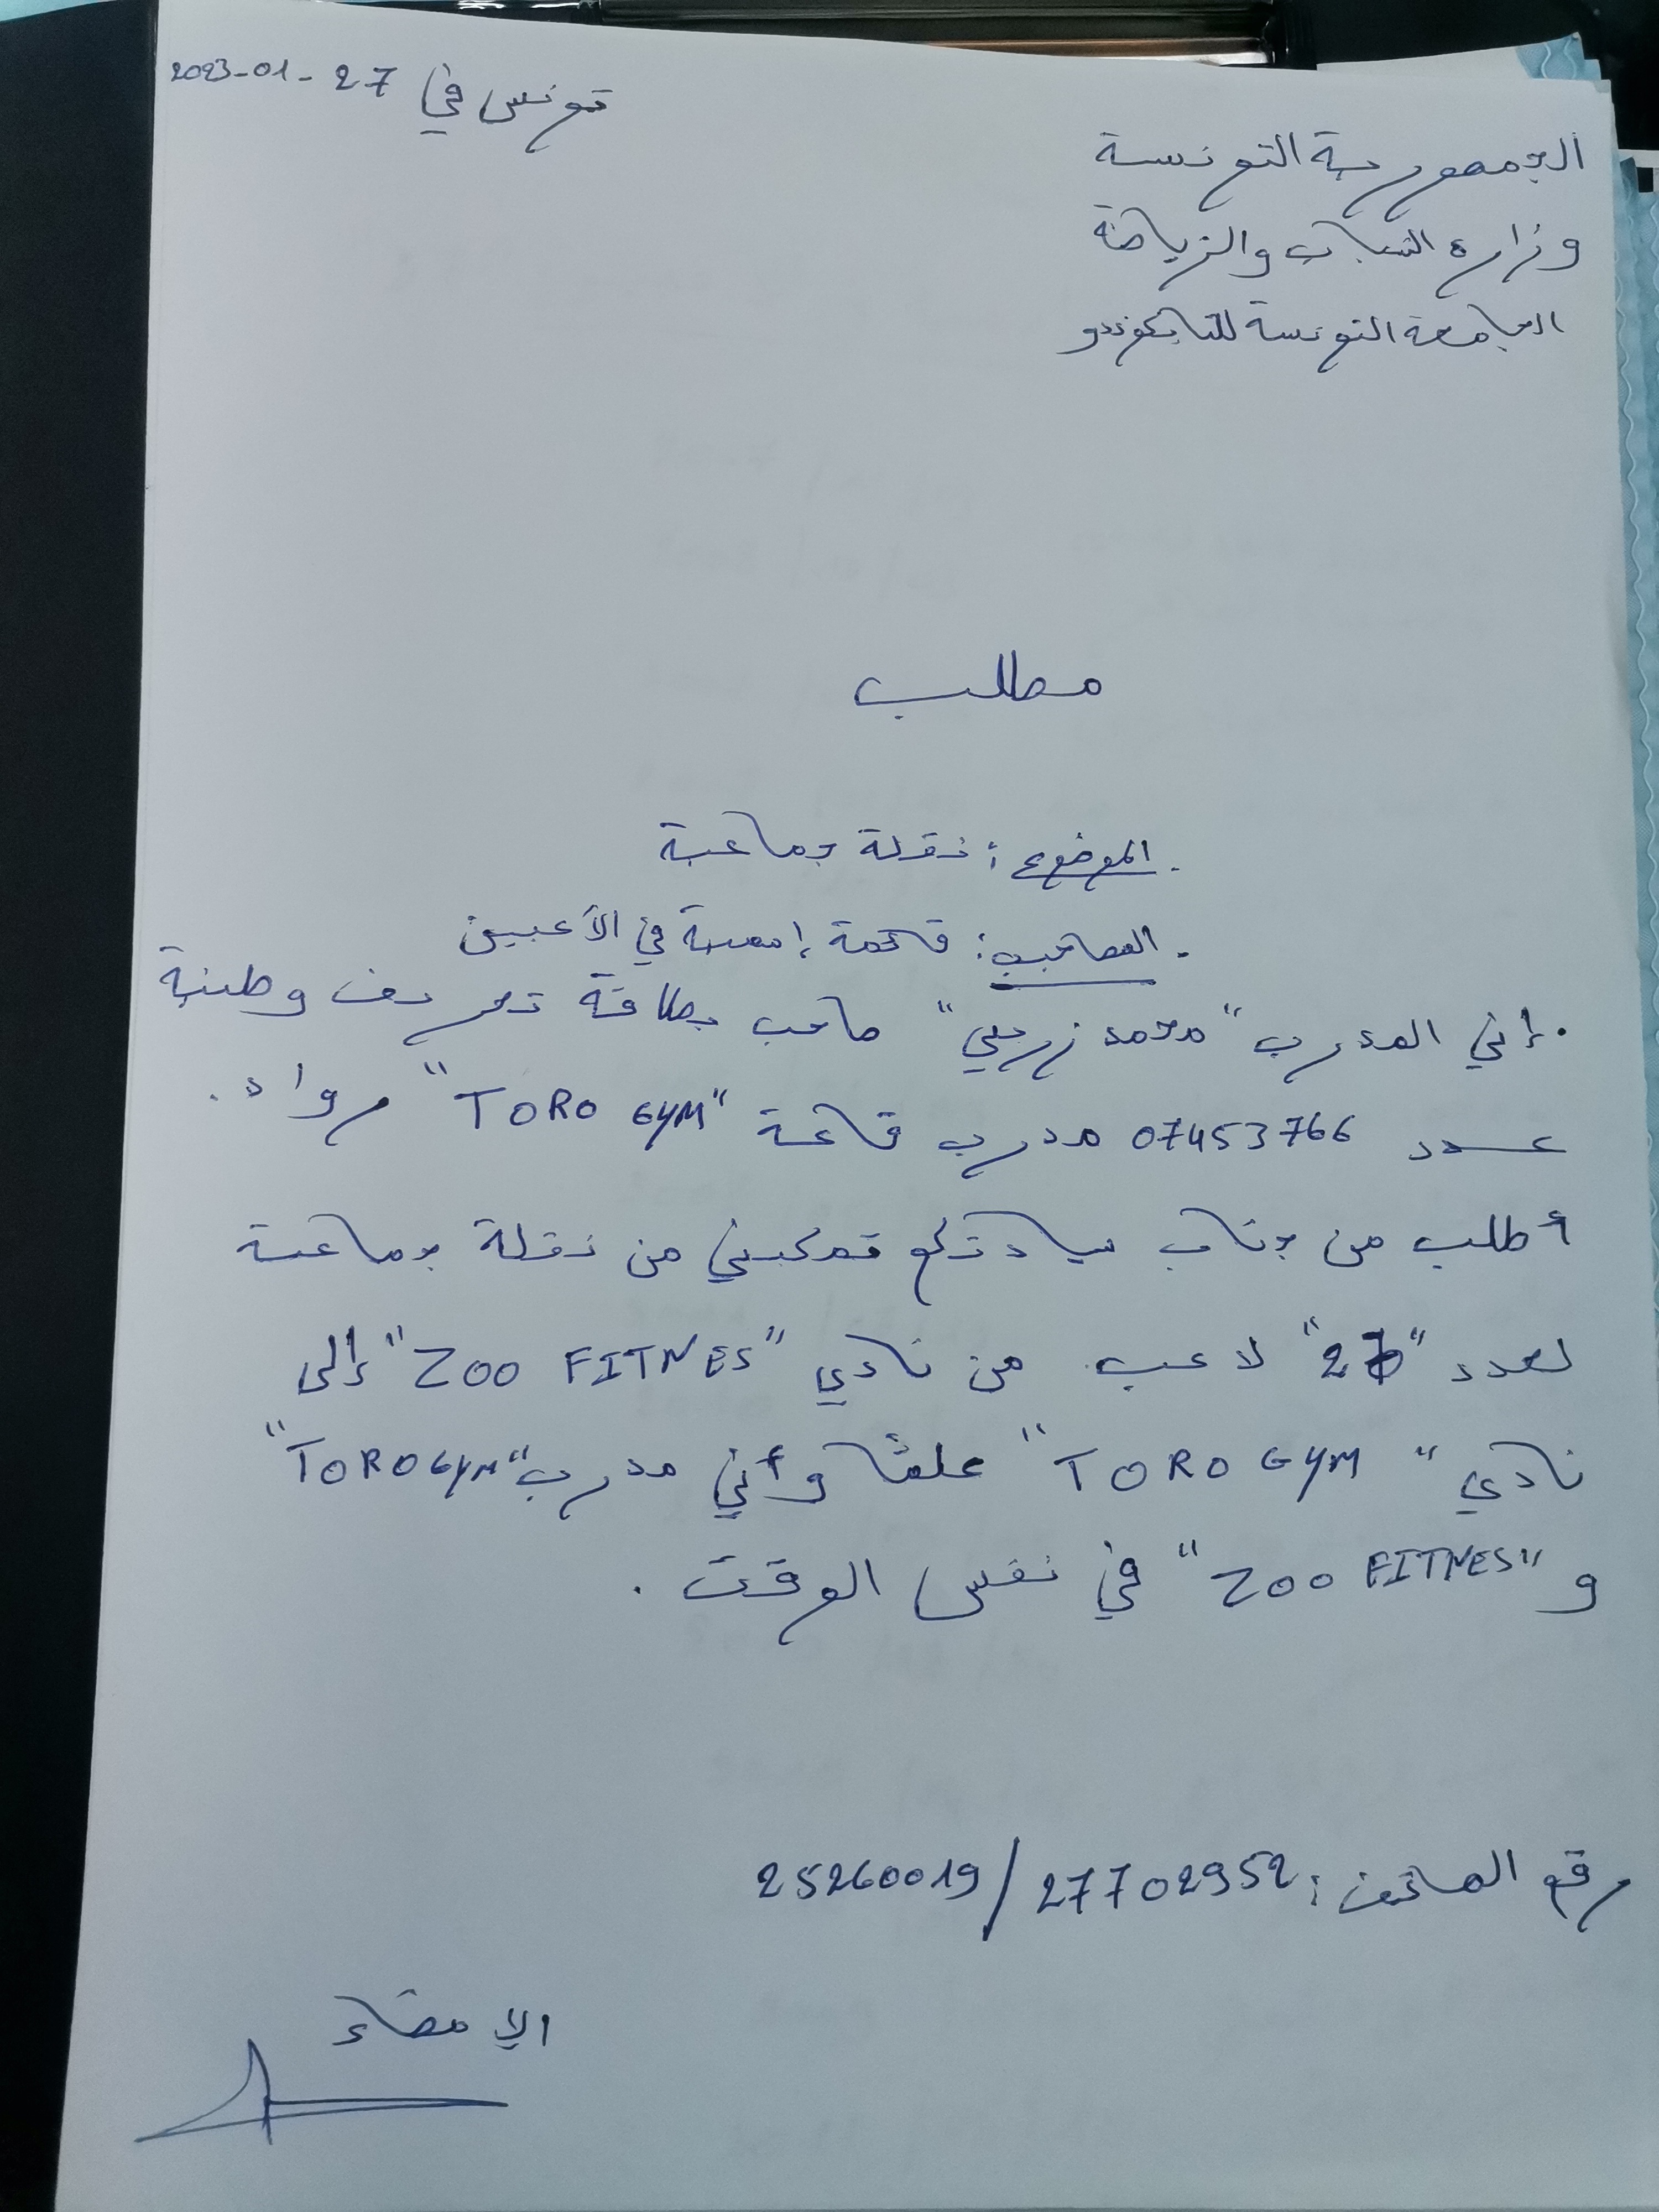 تونس في 27-01-2023
الجمهورية التونسية
وزارة الشباب والرياضة
الجامعة التونسية للتايكوندو
مطلب
. الموضوع : نقلة جماعية
. المصاحيب : قائمة إسمية في الاعبين
. إني المدرب "محمد زريبي" صاحب بطاقة تعريف وطنية
عدد 07453766 مدرب قاعة "TORO GYM" رواد .
أطلب من جناب سيادتكم تمكيني من نقلة جماعية
لعدد "26" لاعب من نادي "ZOO FITNES" إلى
نادي "TORO GYM" علمًا وأني مدرب "TORO GYM"
و "ZOO FITNES" في نفس الوقت .
رقم الهاتف : 27702952 / 25260019
الإمضاء